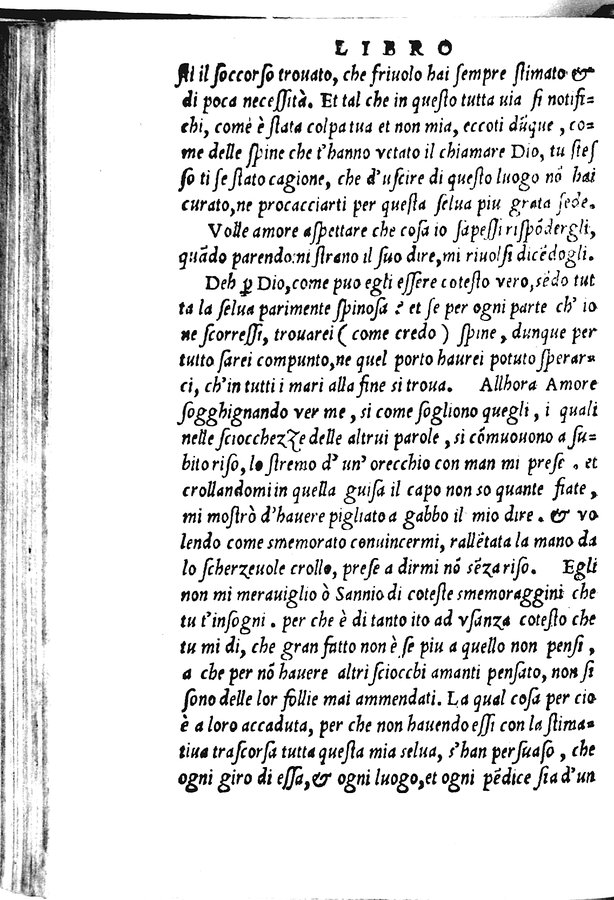 LIBRO
sti il soccorso trouato, che friuolo hai sempre stimato &
di poca necessità. Et tal che in questo tutta uia si notifi=
chi, come è stata colpa tua et non mia, eccoti dũque, co=
me delle spine che t'hanno vetato il chiamare Dio, tu stes
so ti se stato cagione, che d'uscire di questo luogo nō hai
curato, ne procacciarti per questa selua piu grata sede.
Volle amore aspettare che cosa io sapessi rispōdergli,
quādo parendomi strano il suo dire, mi riuolsi dicēdogli.
Deh ꝑ Dio, come puo egli essere cotesto vero, sēdo tut
ta la selua parimente spinosa ? et se per ogni parte ch' io
ne scorressi, trouarei ( come credo ) spine, dunque per
tutto sarei compunto, ne quel porto haurei potuto sperar=
ci, ch'in tutti i mari alla fine si troua. Allhora Amore
sogghignando ver me, si come sogliono quegli, i quali
nelle sciocchezze delle altrui parole, si cōmuouono a su=
bito riso, lo stremo d' un' orecchio con man mi prese . et
crollandomi in quella guisa il capo non so quante fiate,
mi mostrò d'hauere pigliato a gabbo il mio dire. & vo
lendo come smemorato conuincermi, rallētata la mano da
lo scherzeuole crollo, prese a dirmi nō sēza riso. Egli
non mi merauiglio ò Sannio di coteste smemoraggini che
tu t'insogni . per che è di tanto ito ad vsanza cotesto che
tu mi di, che gran fatto non è se piu a quello non pensi,
a che per nō hauere altri sciocchi amanti pensato, non si
sono delle lor follie mai ammendati. La qual cosa per cio
è a loro accaduta, per che non hauendo essi con la stima=
tiua trascorsa tutta questa mia selua, s'han persuaso, che
ogni giro di essa, & ogni luogo, et ogni pēdice sia d'un